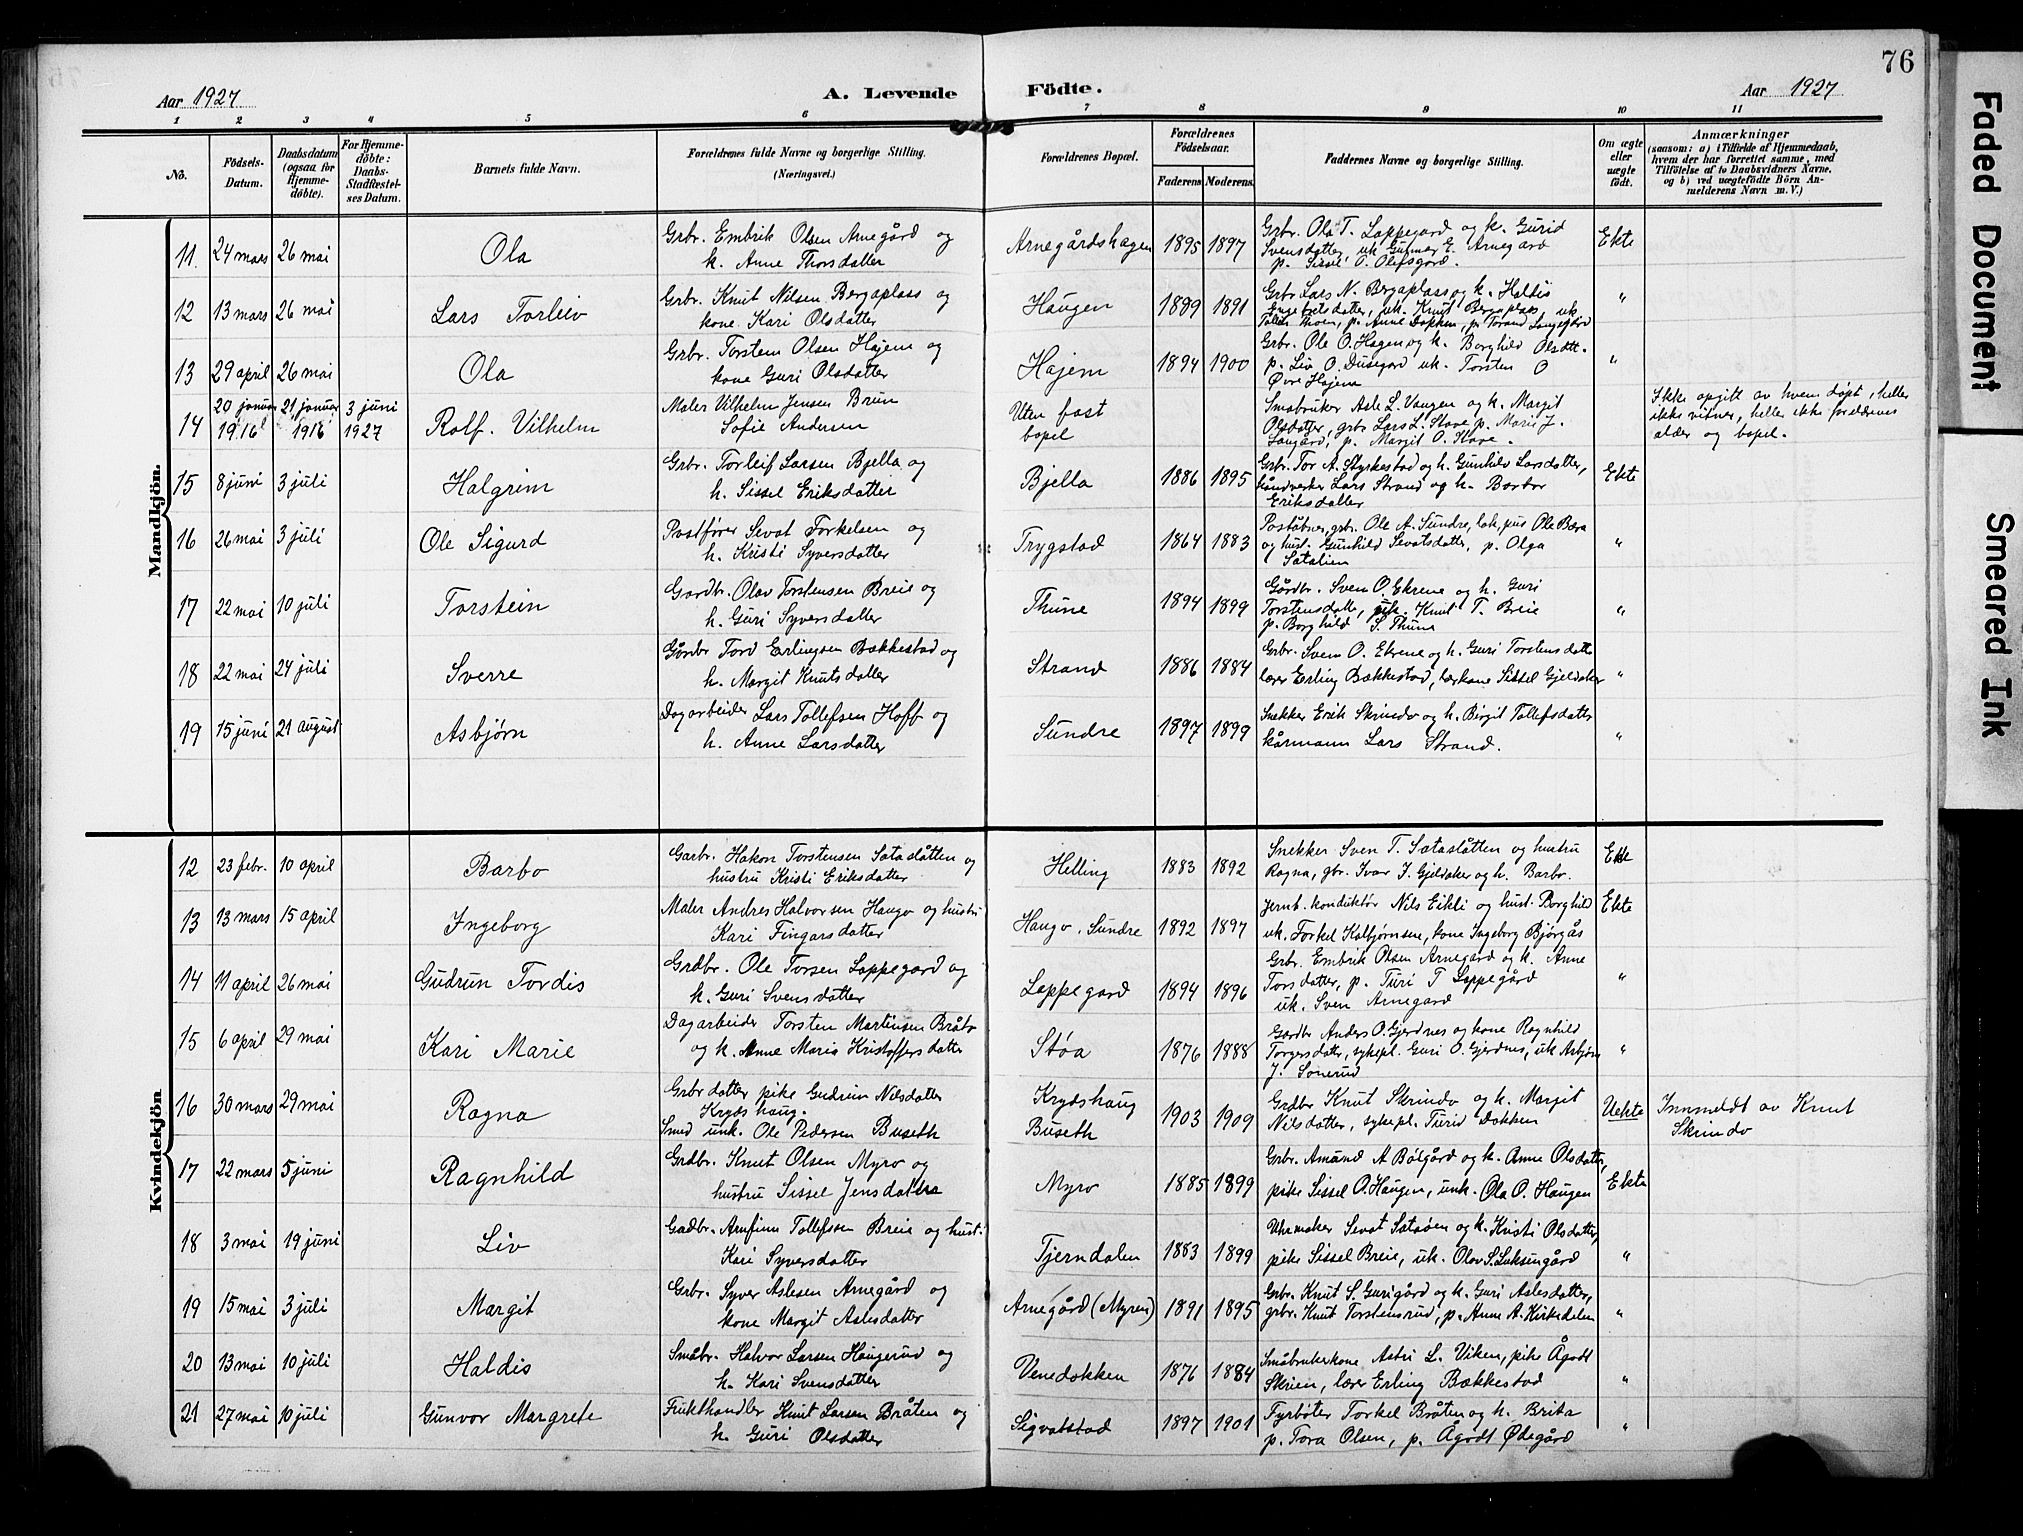 76
Aar 1927
A. Levende Födte.
Aar 1927
1 2 3 4 5 6 7 8 9 10 11
No.
Födsels-Datum.
Daabsdatum (ogsaa for Hjemme-döbte).
For Hjemme-döbte: Daabs-Stadfæstel-ses Datum.
Barnets fulde Navn.
Forældrenes fulde Navne og borgerlige Stilling.
(Næringsvei.)
Forældrenes Bopæl.
Forældrenes Födselsaar.
Faderens. Moderens.
Faddernes Navne og borgerlige Stilling.
Om ægte eller uægte födt.
Anmærkninger
(saasom: a) i Tilfælde af Hjemmedaab, hvem der har forrettet samme, med Tilföielse af to Daabsvidners Navne, og b) ved uægtefödte Börn An-melderens Navn m. V.)
Mandkjön.
11. 24 mars 26 mai Ola Grbr. Embrik Olsen Arnegård og k. Anne Thorsdatter Arnegårdshagen 1895 1897 Grbr. Ola T. Lappegard og k. Gurid Svensdatter, uk. Gunnar E. Arnegard p. Sissel O. Olefsgard. Ekte
12 13 mars 26 mai Lars Torleiv Grbr. Knut Nilsen Bergaplass og kone Kari Olsdatter Haugen 1889 1891 Grbr Lars N. Bergaplass og k. Haldis Engebretsdatter, uk. Knut Bergaplass uk Thoen, p. Anne Dokken, p. "
13 29 april 26 mai Ola Grbr. Torsten Olsen Hajem og kone Guri Olsdatter Hajem 1894 1900 Grbr. Ole O. Hagen og k. Borghild Olsdtt. p. Liv O. Dusegard uk. Torsten O Øvre Hajem "
14 20 januar 1916 21 januar 1916 3 juni 1927 Rolf Vilhelm Maler Vilhelm Jensen Brun Sofie Andersen Uten fast bopel Småbruker Asle L. Vangen og k. Margit Olsdatter, grbr Lars L. Stave p. Marie J. p. Margit O. Ikke opgitt av hvem døpt, heller ikke vitner, heller ikke foreldrenes alder og bopel.
15 8 juni 3 juli Halgrim Grbr. Torleif Larsen Bjella og h. Sissel Eriksdatter Bjella 1886 1895 Grbr. Tor A. Styrkestad og h. Gunhild Larsdatter, håndverker Lars Strand og h. Barbro Eriksdatter Ekte
16 26 mai 3 juli Ole Sigurd Postfører Sevat Torkelsen og h. Kristi Syversdatter Trygstad 1864 1883 Poståbner, grbr. Ole A. Sundre, Ole Bæra og hust. Gunhild Sevatsdatter, p. Olga Satalien "
17 22 mai 10 juli Torstein Gardbr. Olav Torstensen Breie og h. Guri Syversdatter Thune 1894 1899 Gårdbr. Sven O. Ekrene og h. Guri Torstensdatte, uk. Knut T. Breie p. Borghild S. Thune "
18 22 mai 24 juli Sverre Gårdbr Tord Erlingsen Bækkestad og h. Margit Knutsdatter Strand 1886 1884 Grbr. Sven O. Ekrene og h. Guri Torstensdatte lærer Erling Bækkestad, lærkone Sissel Gjeldaker "
19 15 juni 21 august Asbjørn Dagarbeider Lars Tollefsen Hoff og h. Anne Larsdatter Sundre 1897 1899 Snekker Erik Skrindo og h. Birgit Tollefsdatter kårmann Lars Strand. "
Kvindekjön
12 23 febr. 10 april Barbo Garbr. Hakon Torstensen Sataslåtten og hustru Kristi Eriksdatter Helling 1883 1892 Snekker Sven T. Sataslåtten og hustru Ragna, gbr. Ivar J. Gjeldaker og h. Barbr. Ekte
13 13 mars 15 april Ingeborg Maler Andres Halvorsen Haugo og hustru Kari Fingarsdatter Haugo, Sundre 1892 1897 Jernb. konduktør Nils Eikli og hust. Borghild uk. Torkel Kolbjørnsen, kone Ingeborg Bjørgås Ekte
14 11 april 26 mai Gudrun Tordis Grdbr. Ole Torsen Lappegard og k. Guri Svensdatter Lappegard 1894 1896 Grbr. Embrik Olsen Arnegård og k. Anne Torsdatter, p. Turi T Lappegård uk. Sven Arnegard "
15 6 april 29 mai Kari Marie Dagarbeider Torsten Martinsen Bråto og k. Anne Maria Kristoffersdatte Støa 1876 1888 Gardbr Anders O. Gjerdnes og kone Ragnhild Torgersdatter, sykepl. Guri O. Gjerdnes, uk Asbjørn J. Sonerud "
16 30 mars 29 mai Ragna Grbrdatter pike Gudrun Nilsdatter Krydshaug. Smed unk. Ole Pedersen Buseth Krydshaug Buseth 1903 1909 Grdbr Knut Skrindo og k. Margit Nilsdatter, sykepl. Turid Dokken Uekte Innmeldt av Knut Skrindo
17 22 mars 5 juni Ragnhild Grdbr. Knut Olsen Myro og hustru Sissel Jensdatter Myro 1885 1899 Grbr. Amund A Bølgård og k. Anne Olsdatter, pike Sissel O. Haugen, unk. Ola O. Haugen Ekte
18 3 mai 19 juni Liv Gadbr. Arnfinn Tollefssen Breie og hust. Kari Syversdatter Tjerndalen 1883 1899 Uhrmaker Sevat Sataøen og k. Kristi Olsdatter, pike Sissel Breie, uk. Olav S. Luksingård "
19 15 mai 3 juli Margit Grbr. Syver Aslesen Arnegård og kone Margit Aslesdatter Arnegård (Myren) 1891 1895 Grbr. Knut S. Gurigård og k. Guri Aslesdatter, grbr. Knut Torstensrud, p. Anne A. Kirkedelen "
20 13 mai 10 juli Haldis Småbr. Halvor Larsen Haugerud og h. Kari Svensdatter Venedokken 1876 1884 Småbrukerkone Astri L. Viken, pike Ågodt Skrien, lærer Erling Bækkestad "
21 27 mai 10 juli Gunvor Margrete Frukthandler Knut Larsen Bråten og h. Guri Olsdatter Sigvatstad 1897 1901 Fyrbøter Torkel Bråten og h. Brita p. Tora Olsen, p. Ågodt Ødegård "
Faded Document
Smeared Ink